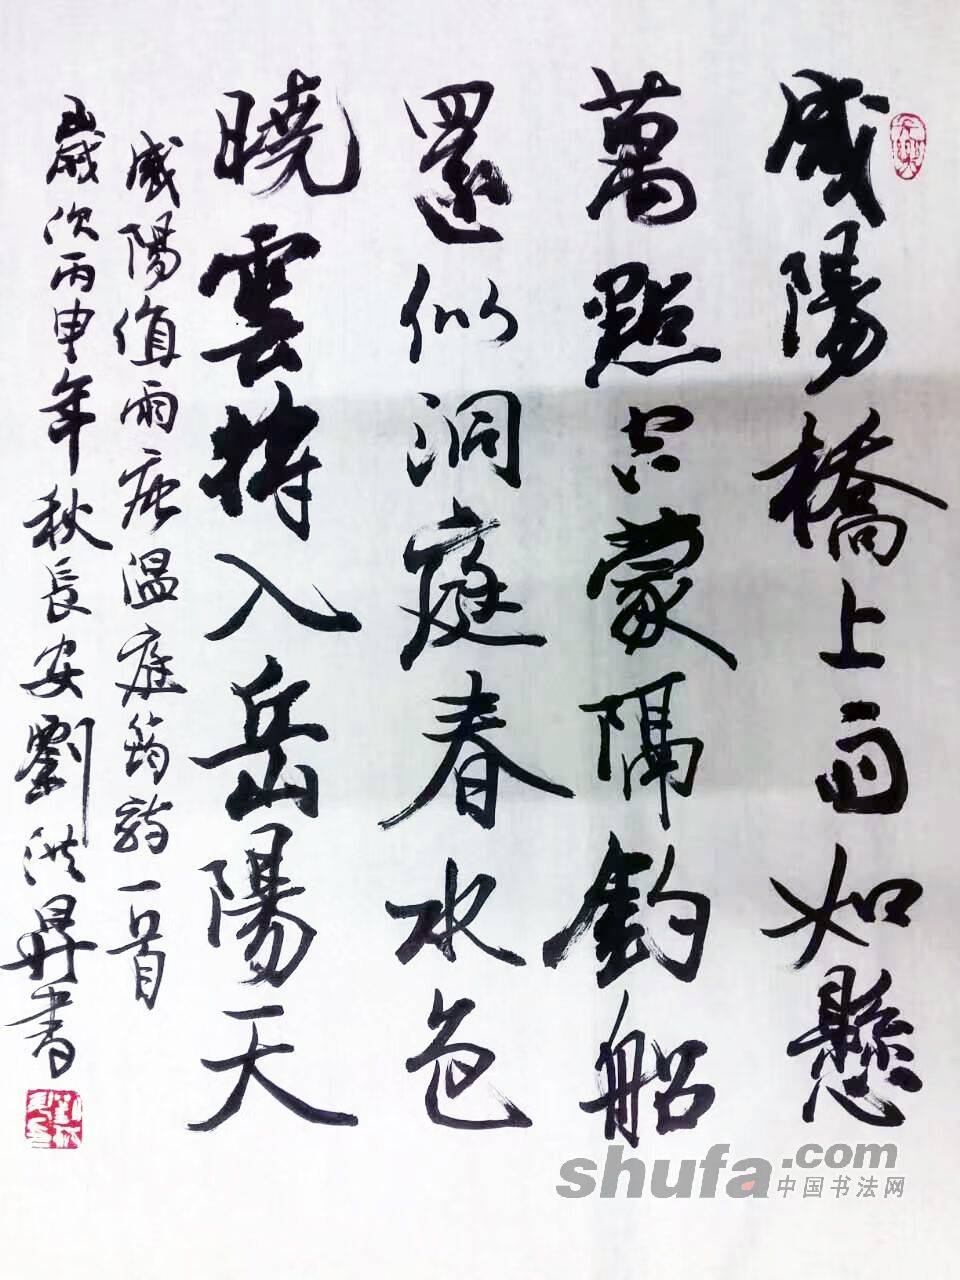 咸陽橋上雨如懸
萬點空蒙隔釣船
還似洞庭春水色
曉雲将入岳陽天
咸陽值雨唐温庭筠詩一首
歲次丙申年秋長安劉洪昇書
shufa.com
中国书法网